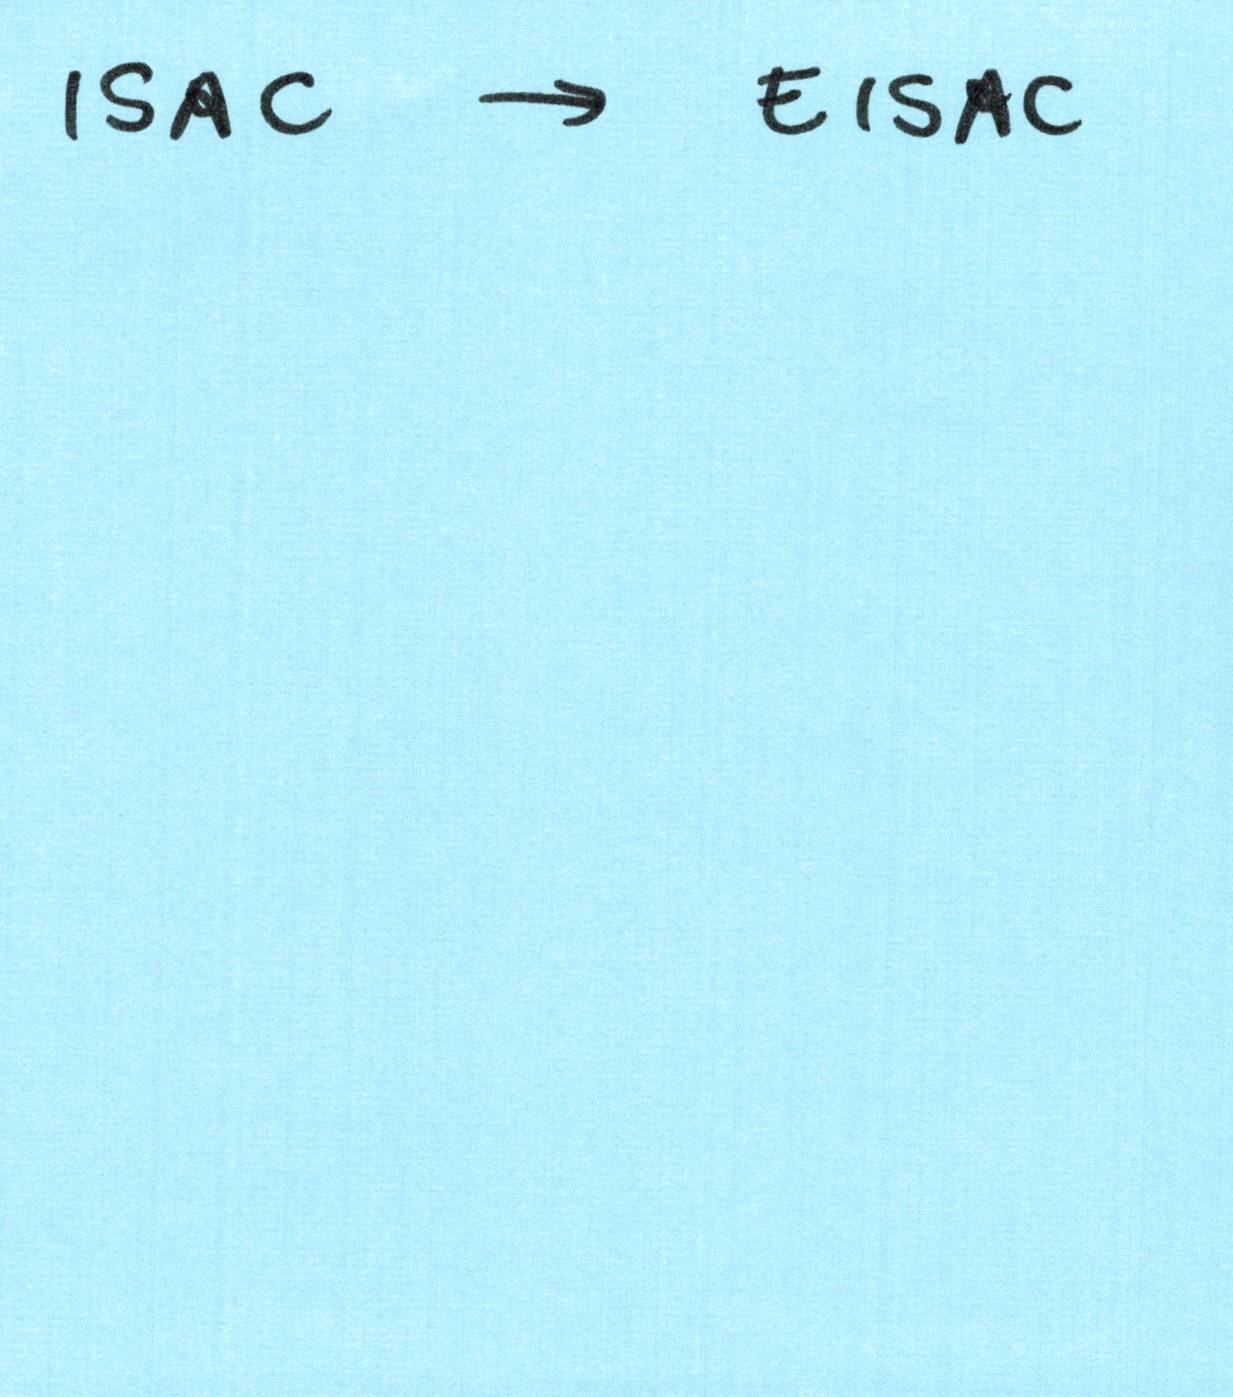 ISAC → EISAC